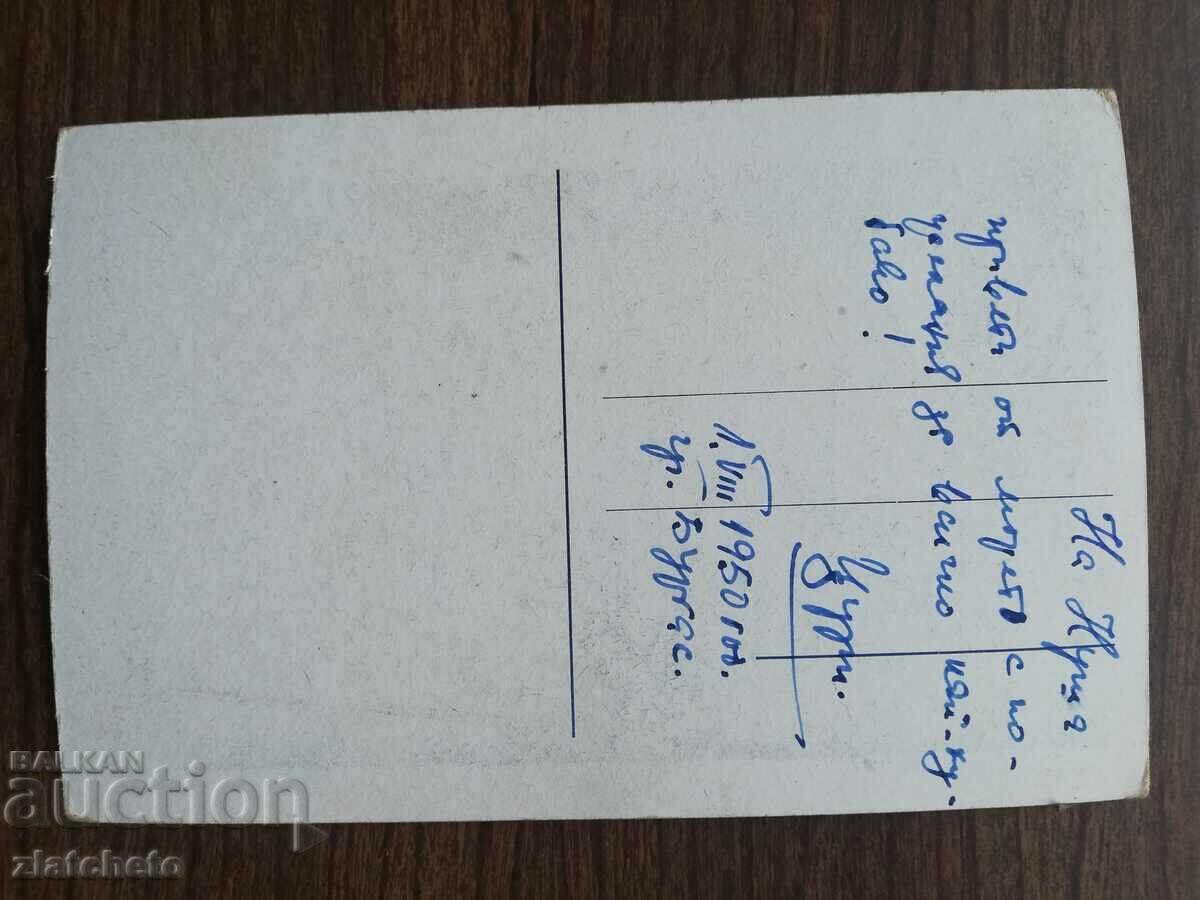 На
от морето с по-
желания за вечно най-ху-
баво!
1.VIII 1950 год.
гр. Бургас.
BALKAN
auction
zlatcheto